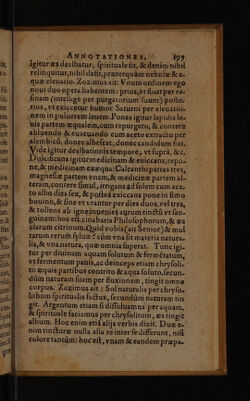 ANNOTATIONES. 195
igitur æs dealbatur, spirituale sit, & denicq; nihil
relinquitur, nihil desit, præterquàm nebolæ & a-
quæ eleuatio. Zozimus ait: Vnum ordinem ego
noui duo opera habentem: prius, vt fluat per re-
sinam (intellige per purgatorium suum) poste-
rius, vt exiccetur humor Saturni per eleuatio-
nem in puluerem leuem. Ponas igitur lapidis le-
uis partem quandam, eum repurgato, & contere
abluendo & coacuendo cum aceto extracto per
alembicũ, donec albescat, donec candidum fiat.
Vide igitur dealbationem tempera, vt supra, &c.
Dulcificans igitur medicinam & exiccans, repo-
ne, & medicinam exæqua: Calcanthi partes tres,
magnesiæ partem vnam, & medicinæ partem al-
teram, contere simul, irrigans id solem cum ace-
to albo dies sex, & postea exiccans ponito in fimo
bouino, & sine vt vrantur per dies duos, vel tres,
& tollens ab igne inuenies aurum tinctũ vt san-
guinem: hoc est, cinabris Philosophorum, & æs
clarum citrinum. Quid vobis (ait Senior) & mul
tarum rerum syluæ? cùm vna sit materia natura-
lis, & vna natura, quæ omnia superat. Tunc igi-
tur per diuinam aquam solutum & fermẽtatum,
vt fermentum panis, ac deinceps etiam chrysoli-
tis æquis partibus contrito & aqua soluto, secun-
dùm naturam suam per fluxionem, tingit omne
corpus. Zozimus ait: Sol naturalis per chryso-
lithum spiritualis factus, secundùm naturam tin
git. Argentum etiam si dissoluamus per aquam,
& spirituale faciamus per chrysolitum, æs tinget
album. Hoc enim etiã alijs verbis dixit. Duæ e-
nim tincturæ nulla alia re inter se differunt, nisi
colore tantùm: hoc est, vnam & eandem præpa-